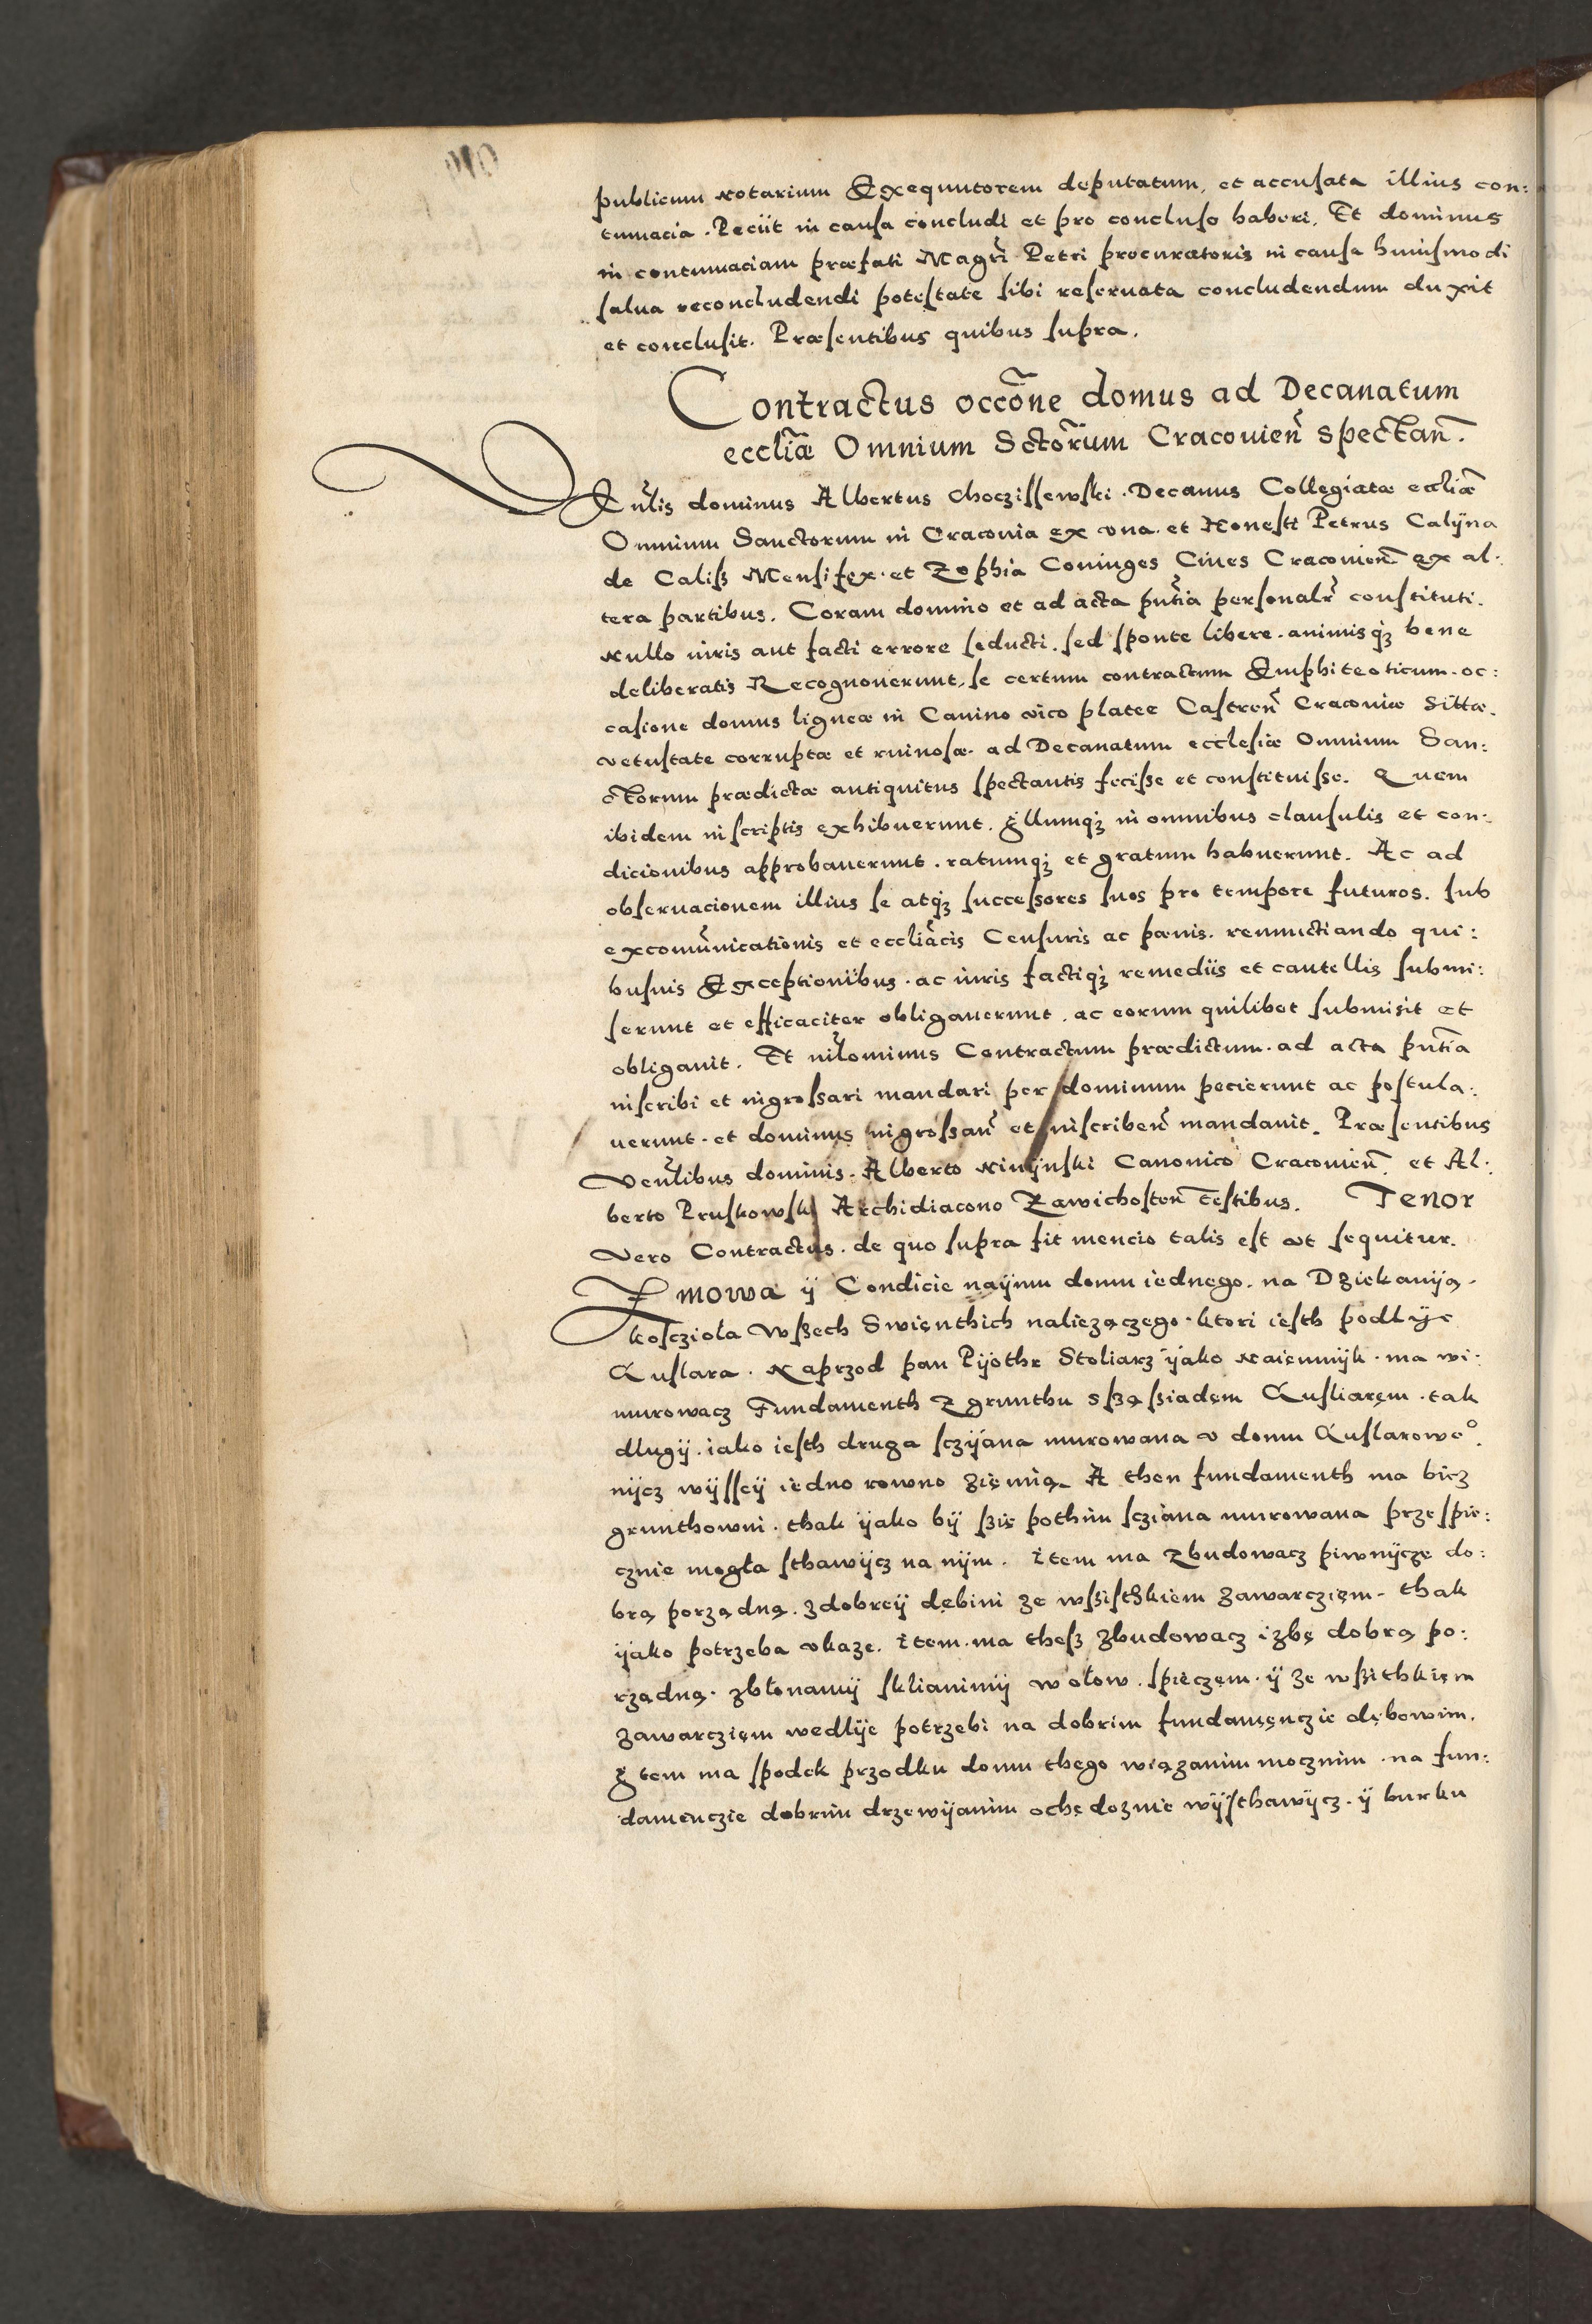 publicum notarium Exequutorem deputatum, et accusata illius con:
tumacia. Peciit in causa concludi et pro concluso haberi. Et dominus
in contumaciam præfati Magr̃i Petri procuratoris in causa huiusmodi
salua reconcludendi potestate sibi reseruata concludendum duxit
et conclusit. Præsentibus quibus supra.
Contractus occõne domus ad Decanatum
eccl̃iæ Omnium Sctõrum Cracouieñ spectañ.
Veñlis dominus Albertus choczissewski. Decanus Collegiatæ eccl̃iæ
Omnium Sanctorum in Cracouia ex vna. et Honesti Petrus Calÿna
de Calisz Mensifex. et Zophia Coninges Ciues Cracouieñ ex al:
tera partibus. Coram domino et ad acta pñtia personalr̃ constituti.
nullo iuris aut facti errore seducti. sed sponte libere. animisqꝫ bene
deliberatis Recognouerunt, se certum contractum Emphiteoticum. oc:
casione domus ligneæ in Canino vico plateæ Castreñ Cracouiæ Sittæ.
vetustate corruptæ et ruinosæ. ad Decanatum ecclesiæ Omnium San:
ctorum prædictæ antiquitus spectantis fecisse et constituisse. Quem
ibidem in scriptis exhibuerunt. Illumqꝫ in omnibus clausulis et con:
dicionibus approbauerunt. ratumqꝫ et gratum habuerunt. Ac ad
obseruacionem illius se atqꝫ successores suos pro tempore futuros. sub
excom̃unicationis et eccl̃iacis Censuris ac pænis. renunctiando qui:
busuis Exceptionibus. ac iuris factiqꝫ remediis et cautellis submi:
serunt et efficaciter obligauerunt. ac eorum quilibet submisit et
obligauit. Et nil̃ominus Contractum prædictum. ad acta pñtia
inscribi et ingrossari mandari per dominum pecierunt ac postula:
uerunt. et dominus ingrossañ et inscribeñ mandauit. Præsentibus
Veñlibus dominis. Alberto Kinÿnski Canonico Cracouieñ. et Al:
berto Pruskowski Archidiacono Zawichosteñ testibus. Tenor
vero Contractus. de quo supra fit mencio talis est vt sequitur.
Zmowa ÿ Condicie naÿmu domu iednego. na Dziekaniją.
kosczioła Wszech Swięnthich naliezączego. ktori iesth podlÿe
Kuslara. Naprzod pan Pijothr Stoliarz ÿako naiemnijk. ma wi:
murowacz Fundamenth z grunthu s szą sziadem Kusliarem. tak
dlugij. iako iesth druga sczijana murowana v domu Kuslarowe°.
nijcz wÿssej iedno rowno zięmią. A then fundamenth ma bicz
grunthowni. thak ÿako bÿ szię pothim scziana murowana przespie:
cznie mogła sthawijcz na nijm. item ma zbudowacz piwnijcze do:
brą porządną. z dobrej dębini ze wszisthkiem zawarczięm. thak
ÿako potrzeba vkaze. item. ma thesz zbudowacz izbę dobrą po:
rządną. z błonamÿ sklianimÿ w ołow. s pieczem. ÿ ze wszithkięm
zawarczięm wedlÿe potrzebi na dobrim fundamęnczie dębowim.
Item ma spodek przodku domu thego wiązanim mocznim. na fun:
damenczie dobrim drzewijanim ochędoznie wÿsthawijcz. ÿ burku